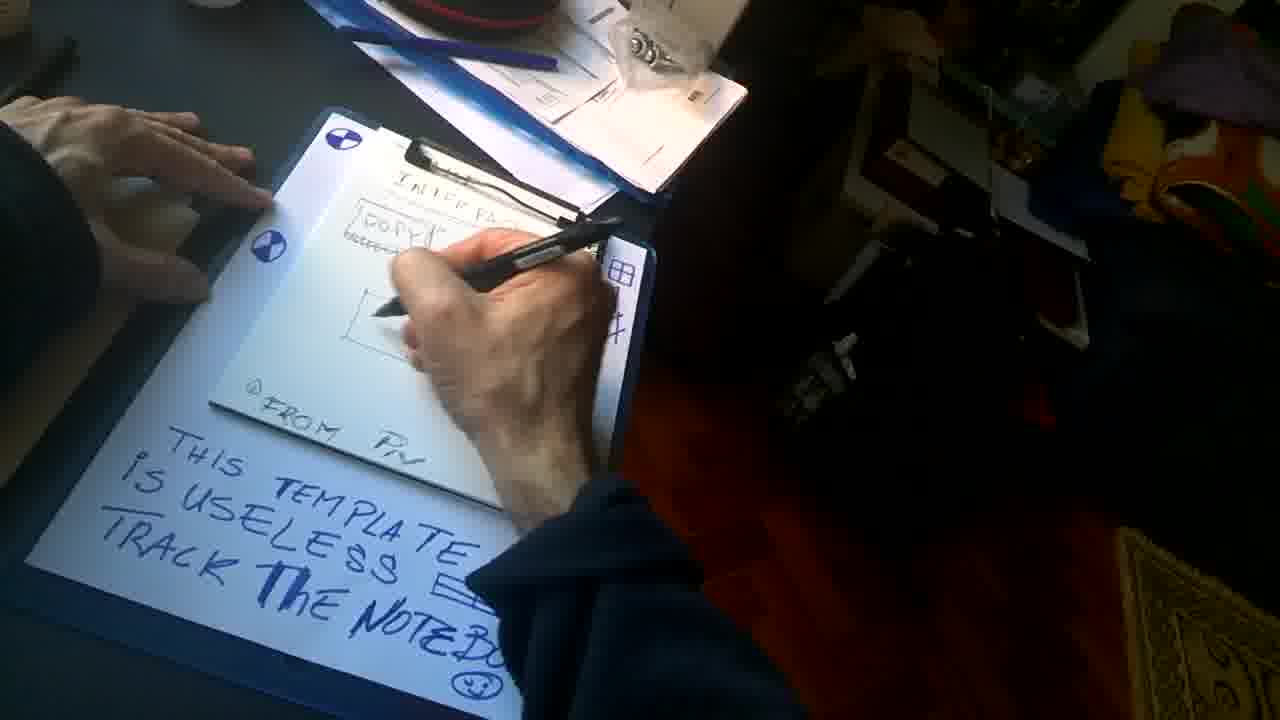 COPY
FROM
THIS TEMPLATE
iS USELESS
TRACK THE NOTEBO